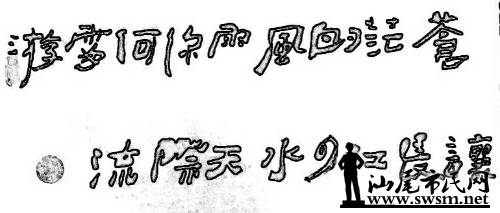 蒼茫的風雨你何處游
讓長江水天際流
汕尾市民网
www.swsm.net